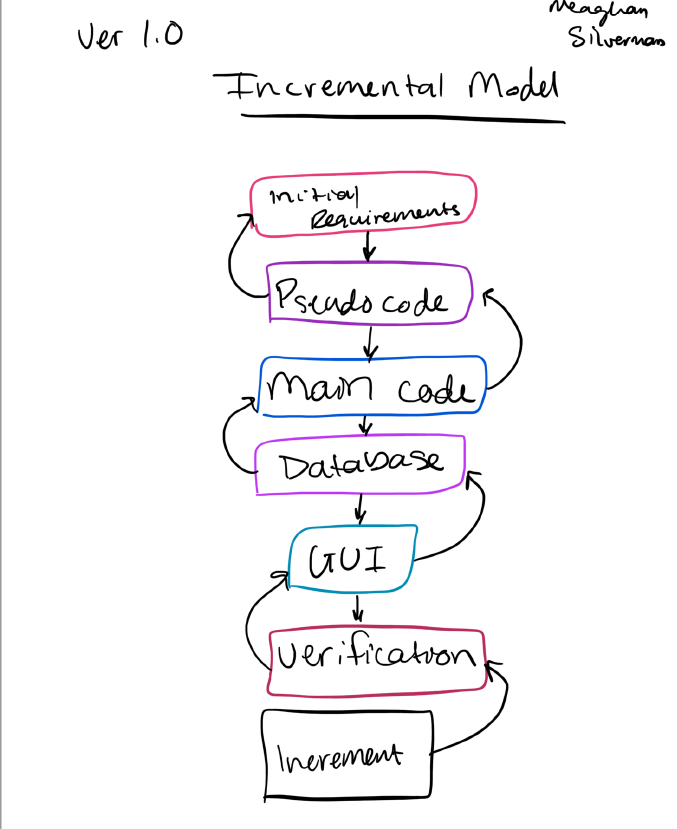 Meaghan
Ver 1.0
Silverman
Incremental Model
Initial
Requirements
Pseudocode
Main code
Database
GUI
Verification
Increment